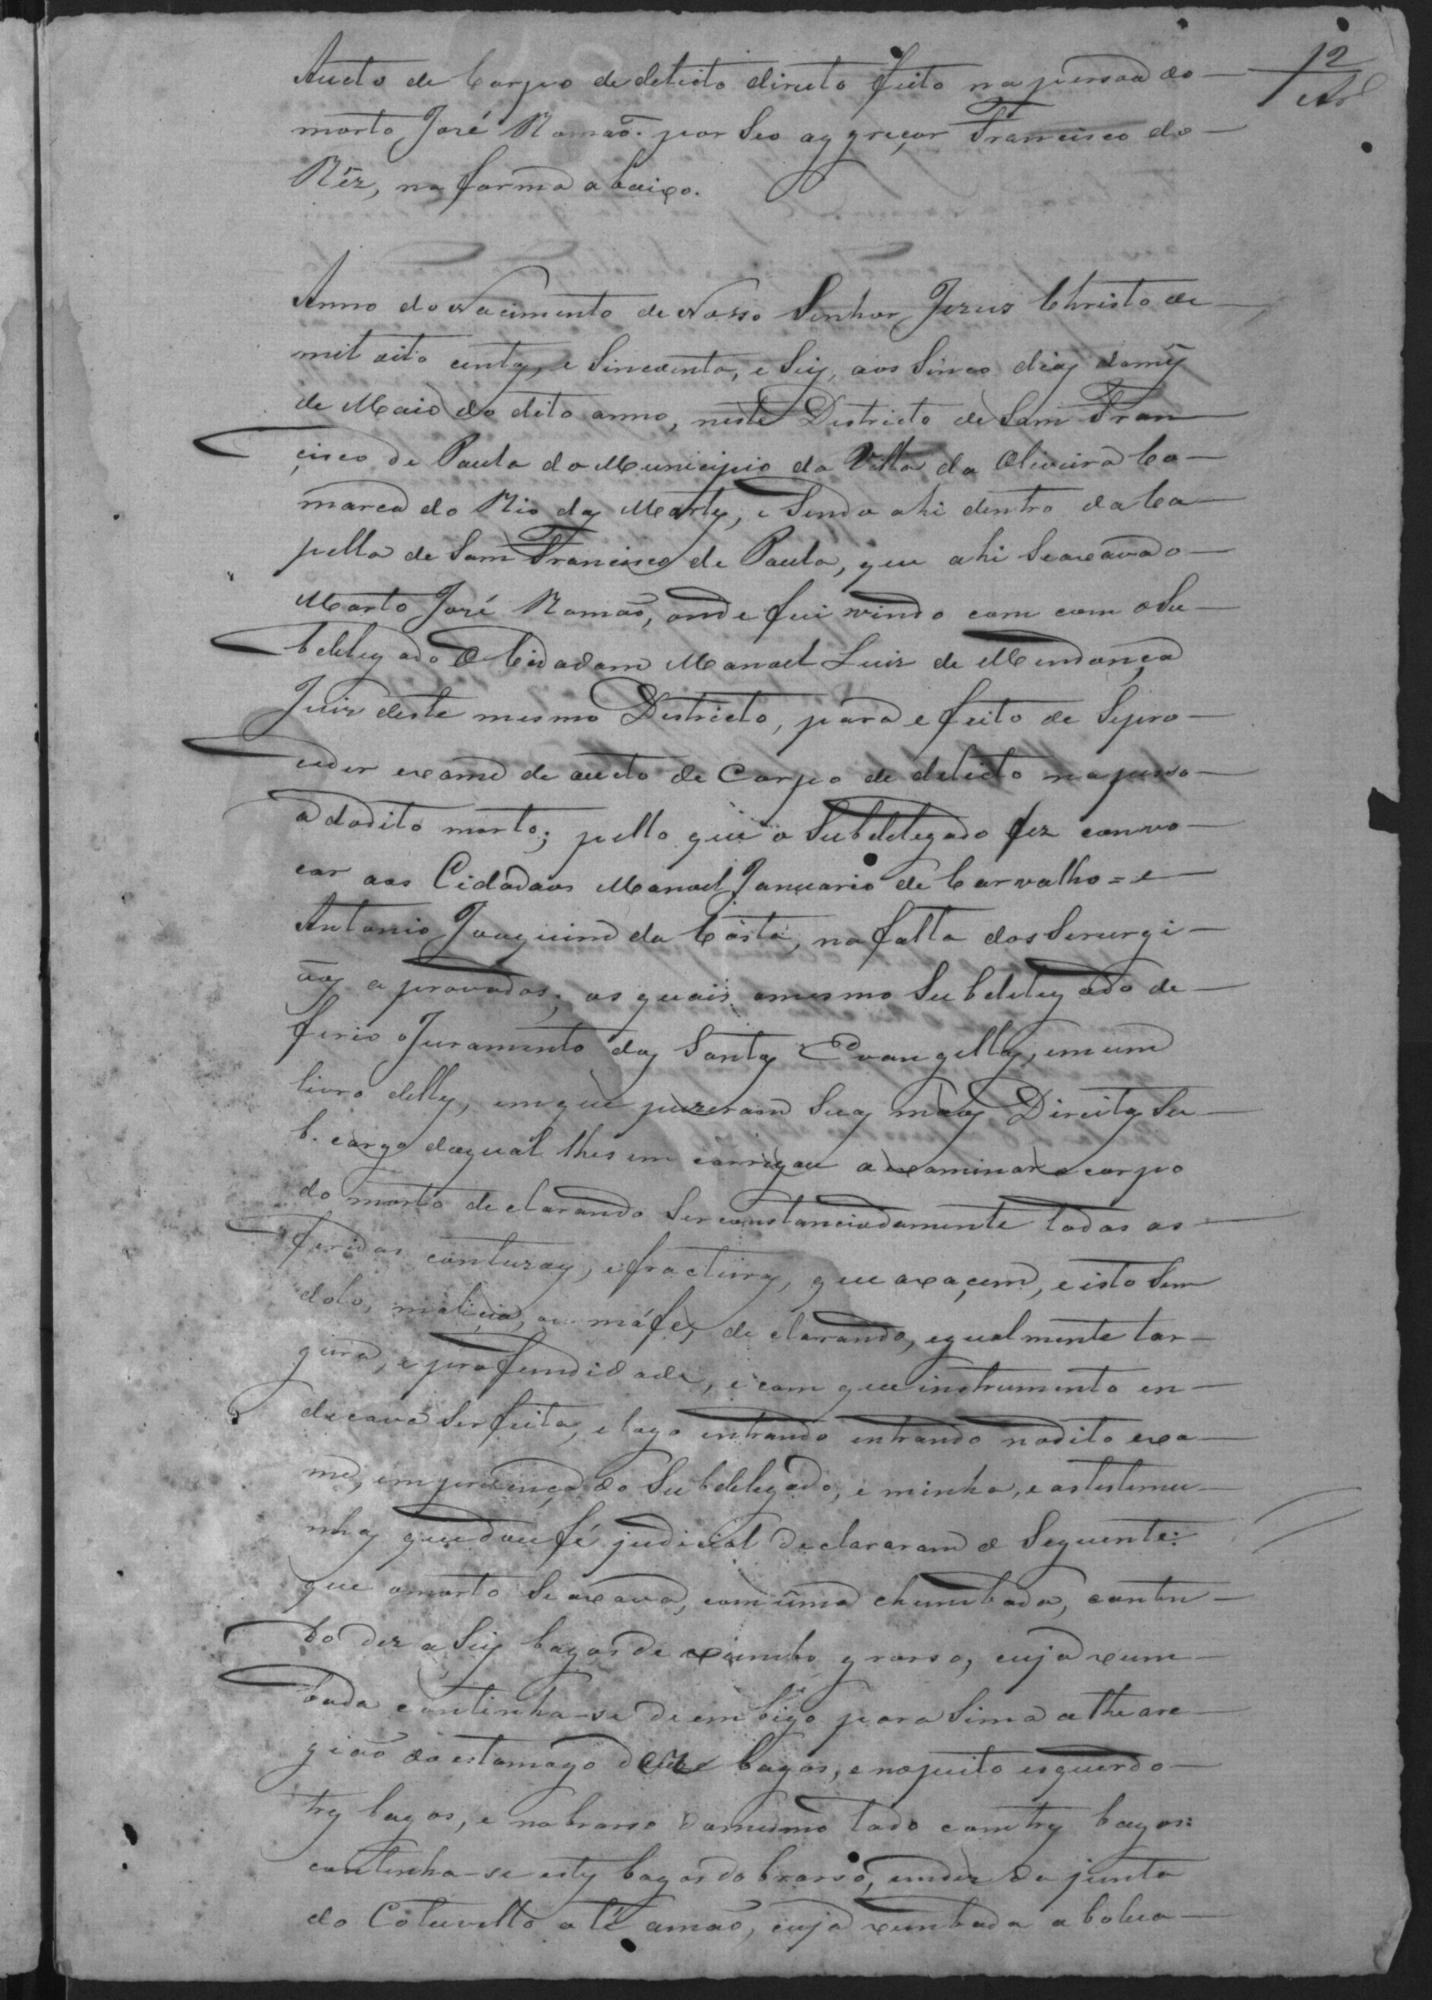 12
Aucto de Corpo de delicto directo feito na pessoa do
morto José Romaõ. por Seo aggreçor Francisco do
Rêz, na forma abaixo.
Anno do Nacimento de Nosso Senhor Jezus Christo de
mil oito centos, e Sincoenta, e Seis, aos Sinco dias do mês
de Maio do dito anno, neste Districto de Sam Fran
çisco de Paula do Municipio da Villa da Oliveira Co
marca do Rio das Mortes, e Sendo ahi dentro da Ca
pella de Sam Francisco de Paula, que ahi Seaxava o
Morto José Romaõ, onde fui vindo com com o Su
bdelegado o Cidadam Manoel Luiz de Mendonça
Juiz deste mesmo Districto, para efeito de Sepro
ceder exame de aucto de Corpo de delicto na pesso
a do dito morto; pello que o Subdelegado fez convo
car aos Cidadaos Manoel Januario de Carvalho = e
Antonio Joaquim da Costa, na falta dos Serurgi
ões aprovados; os quais omesmo Subdelegado de
ferio o Juramento dos Santos Evangellos, em um
livro delles, emque puzeram Suas mãos Direitas Su
b. cargo doqual lhes em carregou a examinar o corpo
do morto declarando Serconstanciadamente todas as
feridas contuzas, e fracturas, que axaçem, e isto Sem
dolo, malicia, ou máfe, declarando, egualmente lar
gura, e profundidade, e com que instrumento en
dicava Ser feitas, e logo entrando entrando nodito exa
me, em prezença do Subdelegado, e minha, e astestemu
nhas que dou fé judicial declararam o Seguente:
que o morto Se axava, com uma chumbada, conten
do dez a Seis bagos de xumbo grosso, cuja xum
bada continha-se de embigo para Sima athe are
gião do estomago doze bagos, e nopeito esquerdo
tres bagos, e nobrasso domesmo lado com tres bagos:
continha-se estes bagos do brasso, da junta
do Cotuvello até amaõ, cuja xumbada